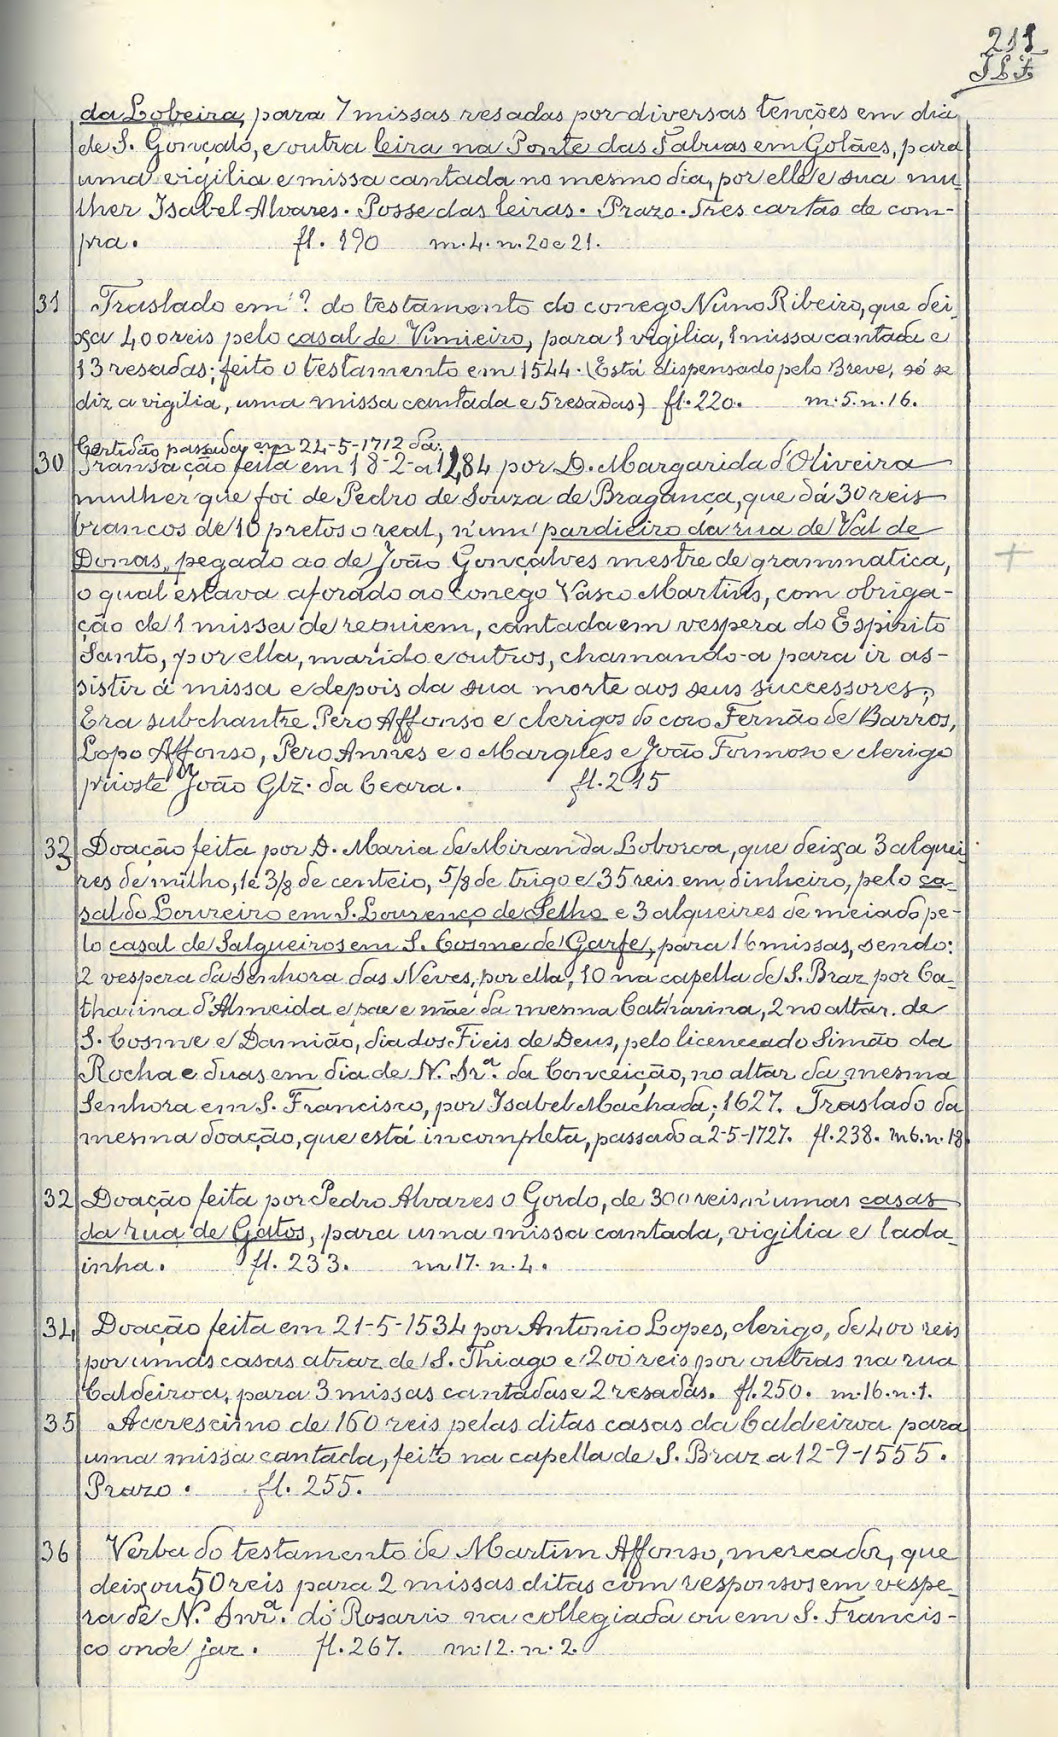 211
da Lobeira, para 7 missas resadas por diversas tenções em dia
de S. Gonçalo, e outra leira na Ponte das Tabuas em Golães, para
uma vigilia e missa cantada no mesmo dia, por elle e sua mu-
lher Isabel Alvares. Posse das leiras. Prazo. Tres cartas de com-
pra. fl. 190 m. 4. n. 20 e 21.
31 Traslado em do testamento do conego Nuno Ribeiro, que dei-
xa 400 reis pelo casal de Vimieiro, para 1 vigilia, 1 missa cantada e
13 resadas; feito o testamento em 1544. (Está dispensado pelo Breve, só se
diz a vigilia, uma missa cantada e 5 resadas) fl. 220. m. 5. n. 16.
Certidão passada em 24-5-1712 da:
30 Transacção feita em 18-2-a 1484 por D. Margarida d'Oliveira
mulher que foi de Pedro de Souza de Bragança, que dá 30 reis
brancos de 10 pretos o real, n'um pardieiro da rua de Val de
Donas, pegado ao de João Gonçalves mestre de grammatica,
o qual estava aforado ao conego Vasco Martins, com obriga-
ção de 1 missa de requiem, cantada em vespera do Espirito
Santo, por ella, marido e outros, chamando-a para ir as-
sistir á missa e depois da sua morte aos seus successores;
Era subchantre Pero Affonso e clerigos do coro Fernão de Barros,
Lopo Affonso, Pero Annes e o Marques e João Formoso e clerigo
prioste João Glz. da Ceara. fl. 215
33 Doação feita por D. Maria de Miranda Loborca, que deixa 3 alquei-
res de milho, 1 e 3/8 de centeio, 5/8 de trigo e 35 reis em dinheiro, pelo ca-
sal do Loureiro em S. Lourenço de Selho e 3 alqueires de meiado pe-
lo casal de Salgueiros em S. Cosme de Garfe, para 16 missas, sendo:
2 vespera da Senhora das Neves, por ella, 10 na capella de S. Braz por Ca-
tharina d'Almeida e pae e mãe da mesma Catharina, 2 no altar de
S. Cosme e Damião, dia dos Fieis de Deus, pelo licenceado Simão da
Rocha e duas em dia de N. Srª. da Conceição, no altar da mesma
Senhora em S. Francisco, por Isabel Machada; 1627. Traslado da
mesma doação, que está incompleta, passado a 2-5-1727. fl. 238. m 6. n. 18.
32 Doação feita por Pedro Alvares o Gordo, de 300 reis, n'umas casas
da rua de Gatos, para uma missa cantada, vigilia e lada-
inha. fl. 233. m 17. n. 4.
34 Doação feita em 21-5-1534 por Antonio Lopes, clerigo, de 400 reis
por umas casas atraz de S. Thiago e 200 reis por outras na rua
Caldeiroa, para 3 missas cantadas e 2 resadas. fl. 250. m. 16. n. 1.
35 Accrescimo de 160 reis pelas ditas casas da Caldeiroa para
uma missa cantada, feito na capella de S. Braz a 12-9-1555.
Prazo. fl. 255.
36 Verba do testamento de Martim Affonso, mercador, que
deixou 50 reis para 2 missas ditas com responsos em vespe-
ra de N. Snrª. do Rosario na collegiada ou em S. Francis-
co onde jaz. fl. 267. m. 12. n. 2.